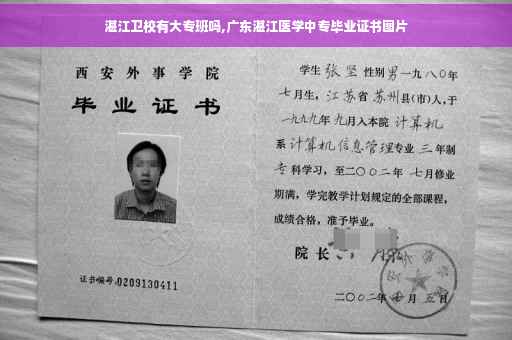 湛江卫校有大专班吗,广东湛江医学中专毕业证书图片
西安外事学院
毕业证书
证书编号:0209130411
学生 张坚 性别 男 一九八〇年
七月生,江苏省苏州县(市)人,于
一九九九年九月入本院 计算机
系 计算机信息管理专业 三 年制
专科学习,至二〇〇二年 七月修业
期满,学完教学计划规定的全部课程,
成绩合格,准予毕业。
院长
二〇〇二年 月五日